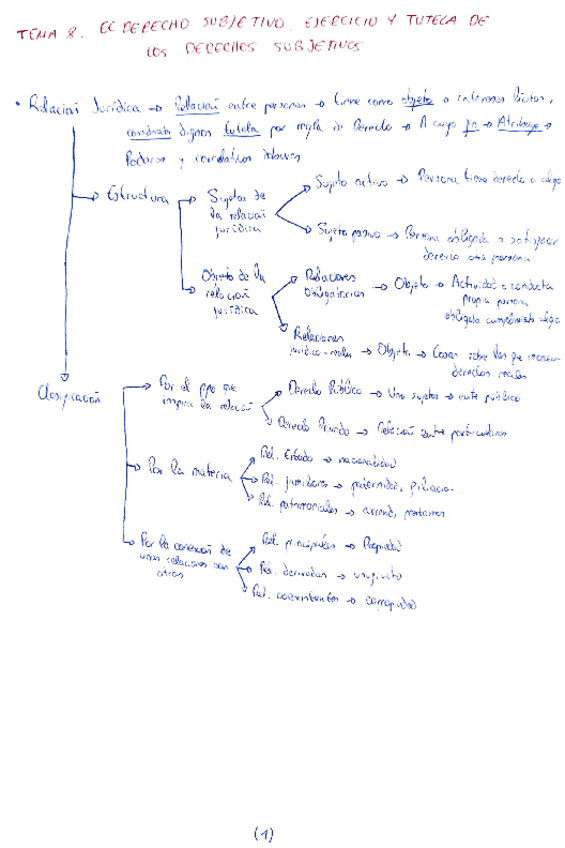 TEMA 8. EL DERECHO SUBJETIVO. EJERCICIO Y TUTELA DE
LOS DERECHOS SUBJETIVOS
• Relación Jurídica → Relación entre personas → tiene como objeto o intereses lícitos,
considerada dignos tutela por regla de Derecho → A cuyo fin → Atribuye →
Poderes y correlativos deberes
→ Estructura → Sujetos de la relación jurídica → Sujeto activo → Persona tiene derecho a algo
→ Sujeto pasivo → Persona obligada a satisfacer
derecho otra persona
→ Objeto de la relación jurídica → Relaciones Obligatorias → Objeto → Actividad o conducta
propia persona
obligada cumplimiento algo
→ Relaciones jurídico-reales → Objeto → Cosas sobre las que recaen
derechos reales
Clasificación
→ Por el ppo que inspira la relación → Derecho Público → Uno sujetos → ente público
→ Derecho Privado → Relación entre particulares
→ Por la materia → Rel. Estado → nacionalidad
→ Rel. familiares → paternidad, filiación
→ Rel. patrimoniales → arrend, préstamos
→ Por la conexión de unas relaciones con otras → Rel. principales → Propiedad
→ Rel. derivadas → usufructo
→ Rel. coexistentes → copropiedad
(1)